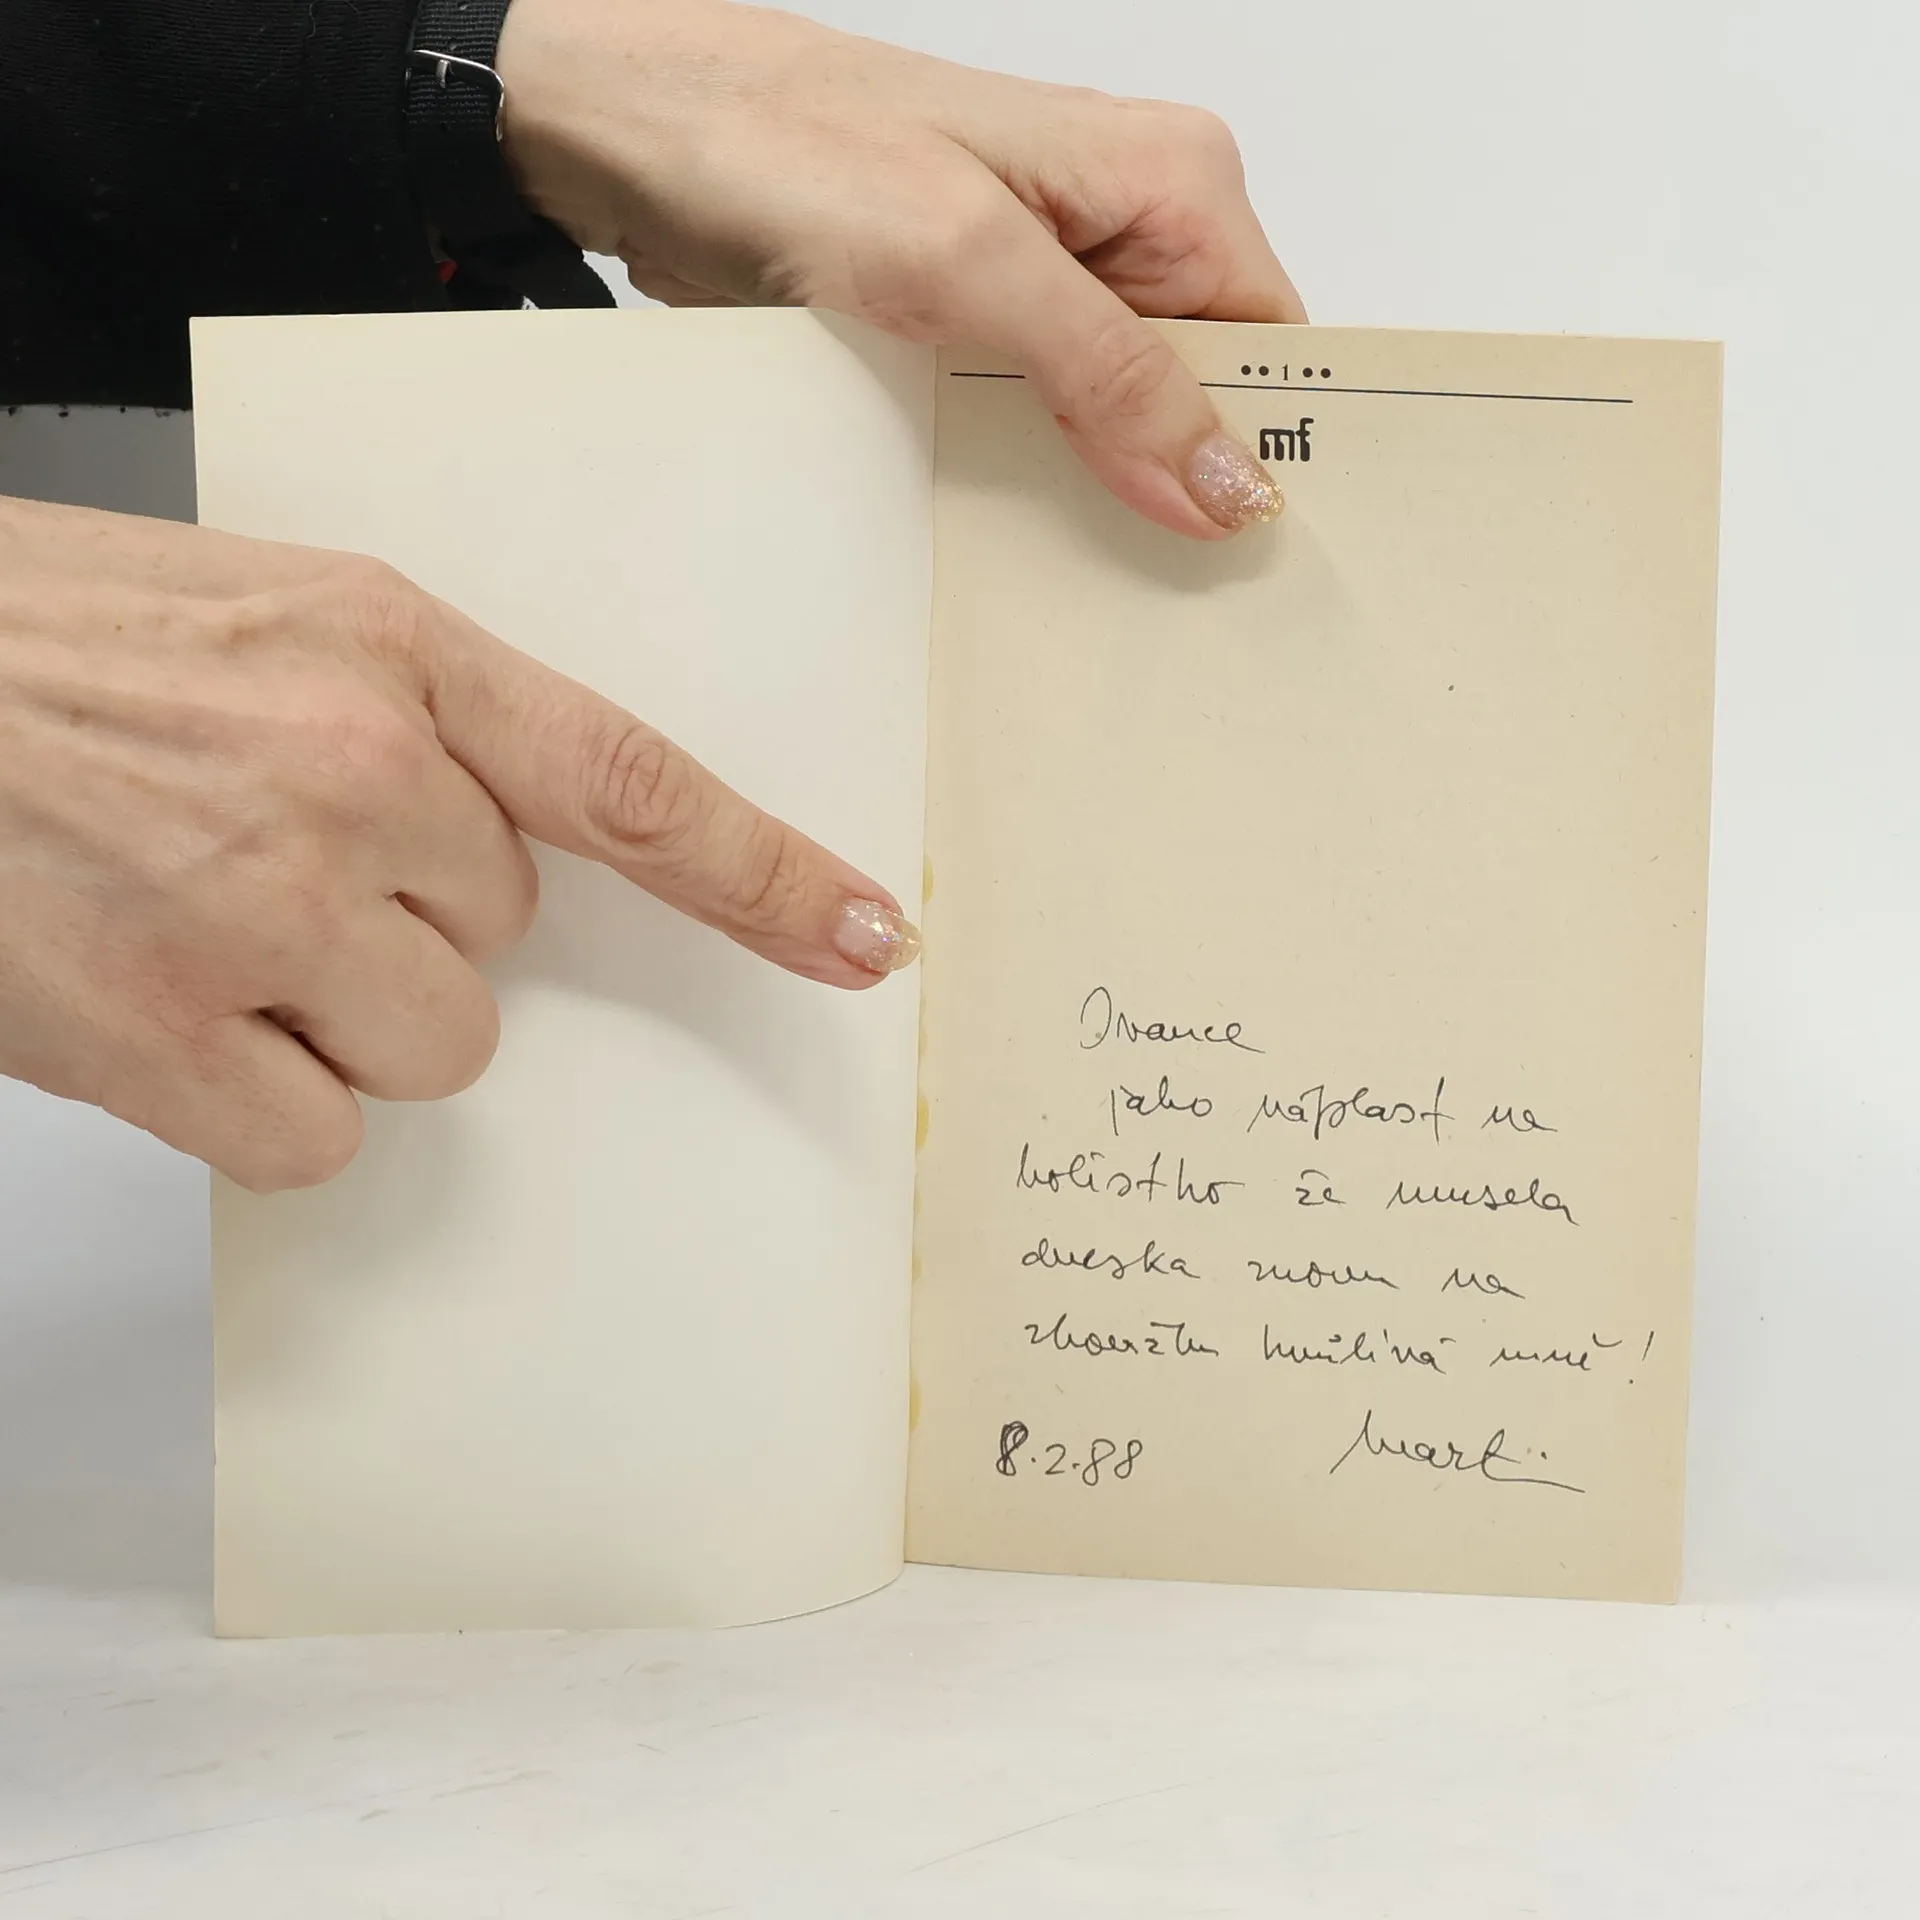 ••1••
mf
Ivance
jako náplast na
bolístko že musela
dneska znovu na
zkoužku kvůlivá mně!
8.2.88
Martin